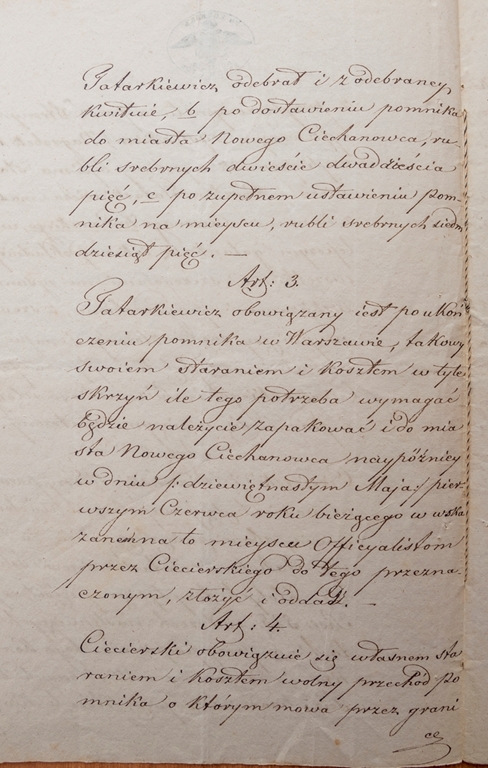 Tatarkiewicz odebrał i z odebraney
kwituie, b po dostawieniu pomnika
do miasta Nowego Ciechanowca, ru-
bli srebrnych dwieście dwadzieścia
pięć, c po zupełnem ustawieniu pom-
nika na mieyscu, rubli srebrnych siedm
dziesiąt pięć. —
Art: 3.
Tatarkiewicz obowiązany iest po ukoń
czeniu pomnika w Warszawie, takowy
swoiem staraniem i kosztem w tyle
skrzyń ile tego potrzeba wymagać
będzie należycie zapakować i do mia
sta Nowego Ciechanowca naypóźniey
w dniu /: dziewiętnastym Maja :/ pier-
wszym Czerwca roku bieżącego w wska
zaném na to mieyscu Officyalistom
przez Ciecierskiego do tego przezna-
czonym, złożyć i oddać. —
Art: 4.
Ciecierski obowiązuie się własnem sta
raniem i kosztem wolny przechód po
mnika o którym mowa przez grani
ce